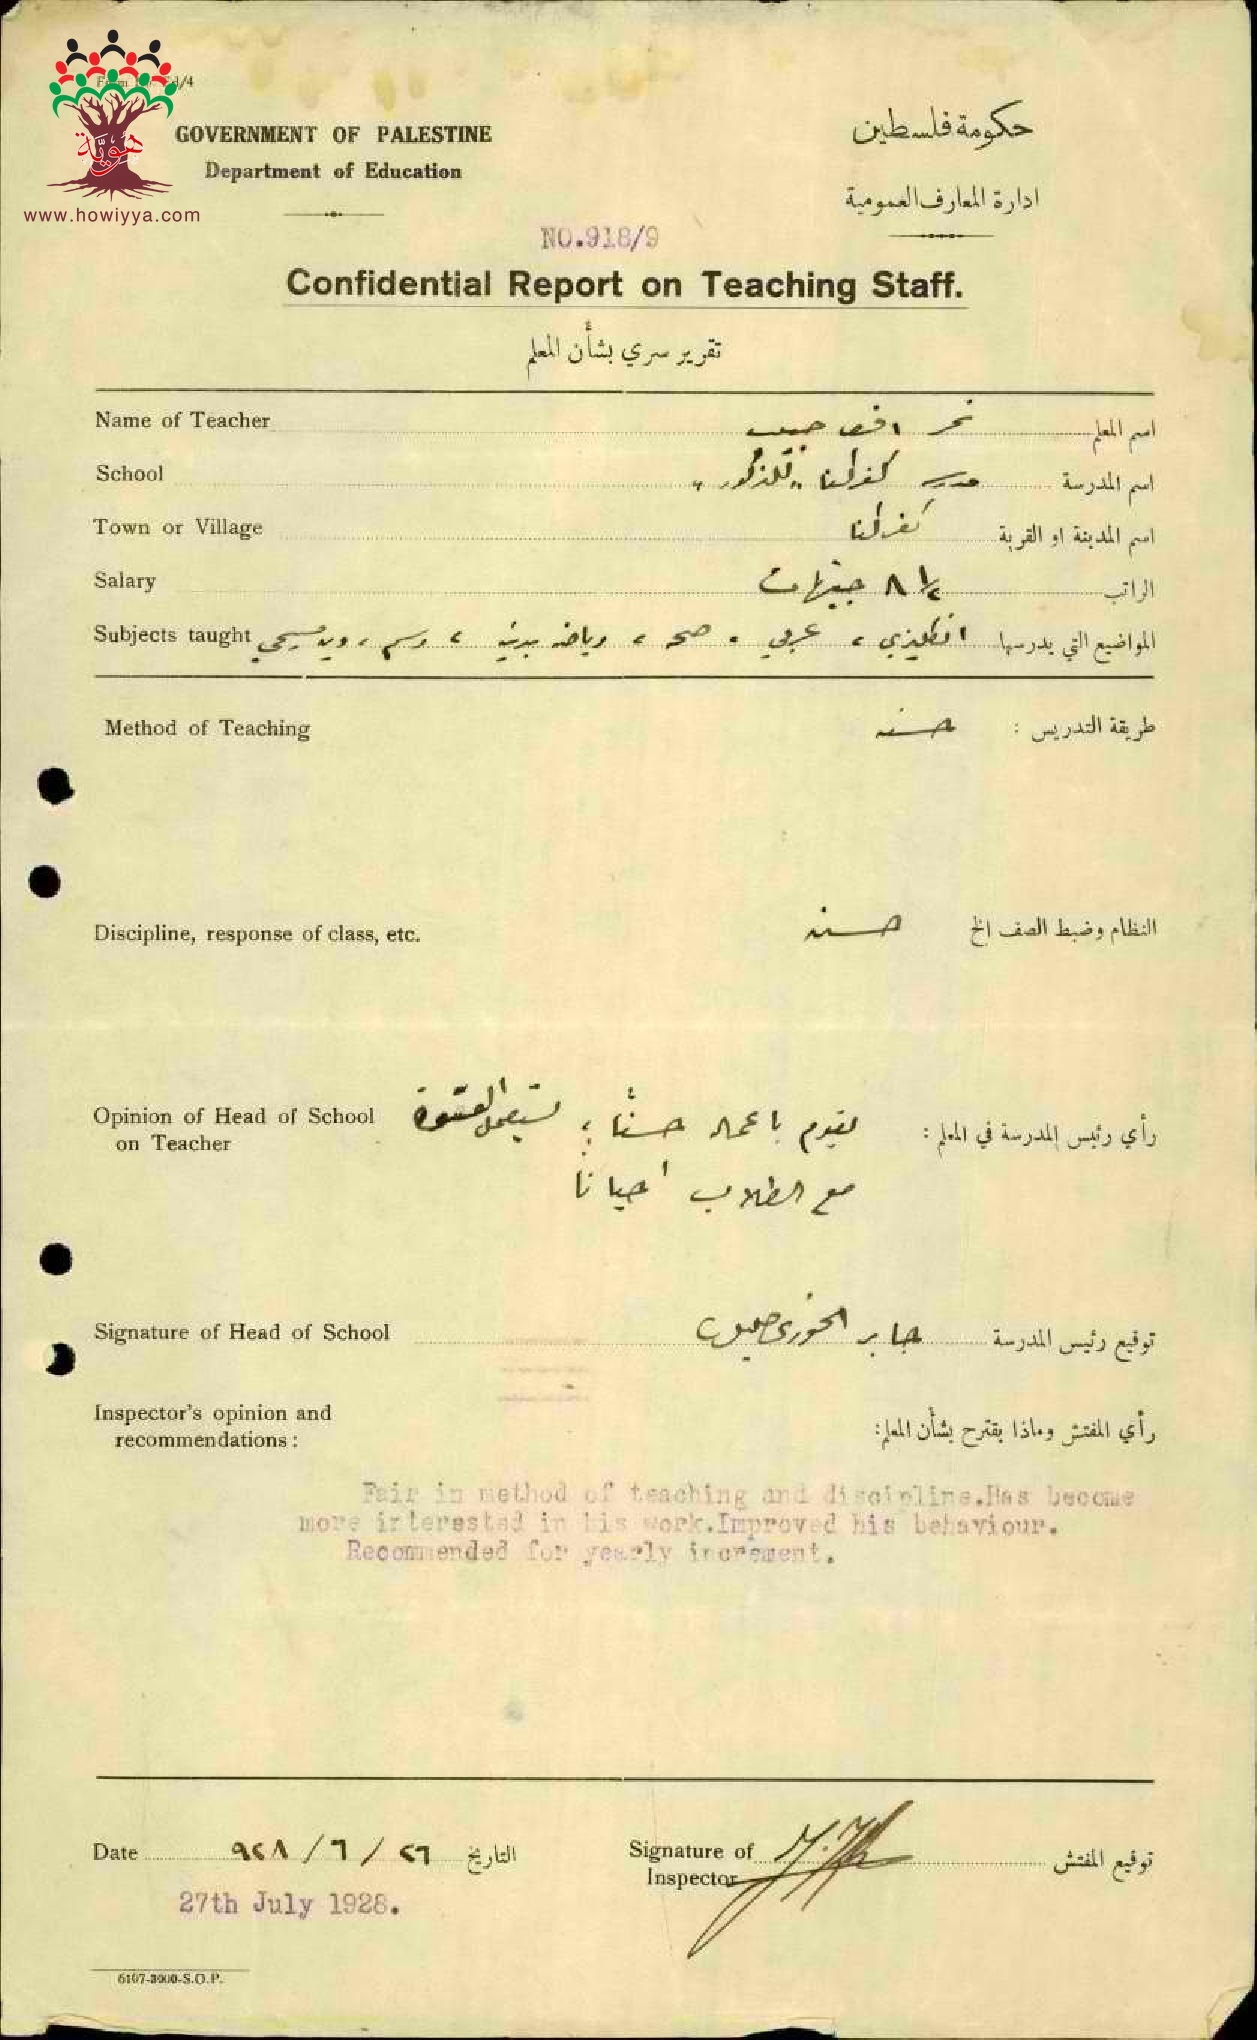 هوية
www.howiyya.com
GOVERNMENT OF PALESTINE
Department of Education
حكومة فلسطين
ادارة المعارف العمومية
NO.918/9
Confidential Report on Teaching Staff.
تقرير سري بشأن المعلم
Name of Teacher نمر افندي حبيب اسم المعلم
School مدرسة كفركنا "للذكور" اسم المدرسة
Town or Village كفركنا اسم المدينة او القرية
Salary ٨ ١/٢ جنيهات الراتب
Subjects taught انكليزي ، عربي ، صحة ، رياضه بدنية ، رسم ، دين مسيحي المواضيع التي يدرسها
Method of Teaching حسنه طريقة التدريس :
Discipline, response of class, etc. حسنه النظام وضبط الصف الخ
Opinion of Head of School on Teacher يقوم باعماله حسناً ؛ يستعمل القسوة رأي رئيس المدرسة في المعلم :
مع الطلاب احياناً
Signature of Head of School جابر الخوري توقيع رئيس المدرسة
Inspector's opinion and recommendations : رأي المفتش وماذا يقترح بشأن المعلم:
Fair in method of teaching and discipline.Has become
more interested in his work.Improved his behaviour.
Recommended for yearly increment.
Date ٩٢٨ / ٦ / ٢٦ التاريخ
Signature of Inspector توقيع المفتش
27th July 1928.
6107-3000-S.O.P.